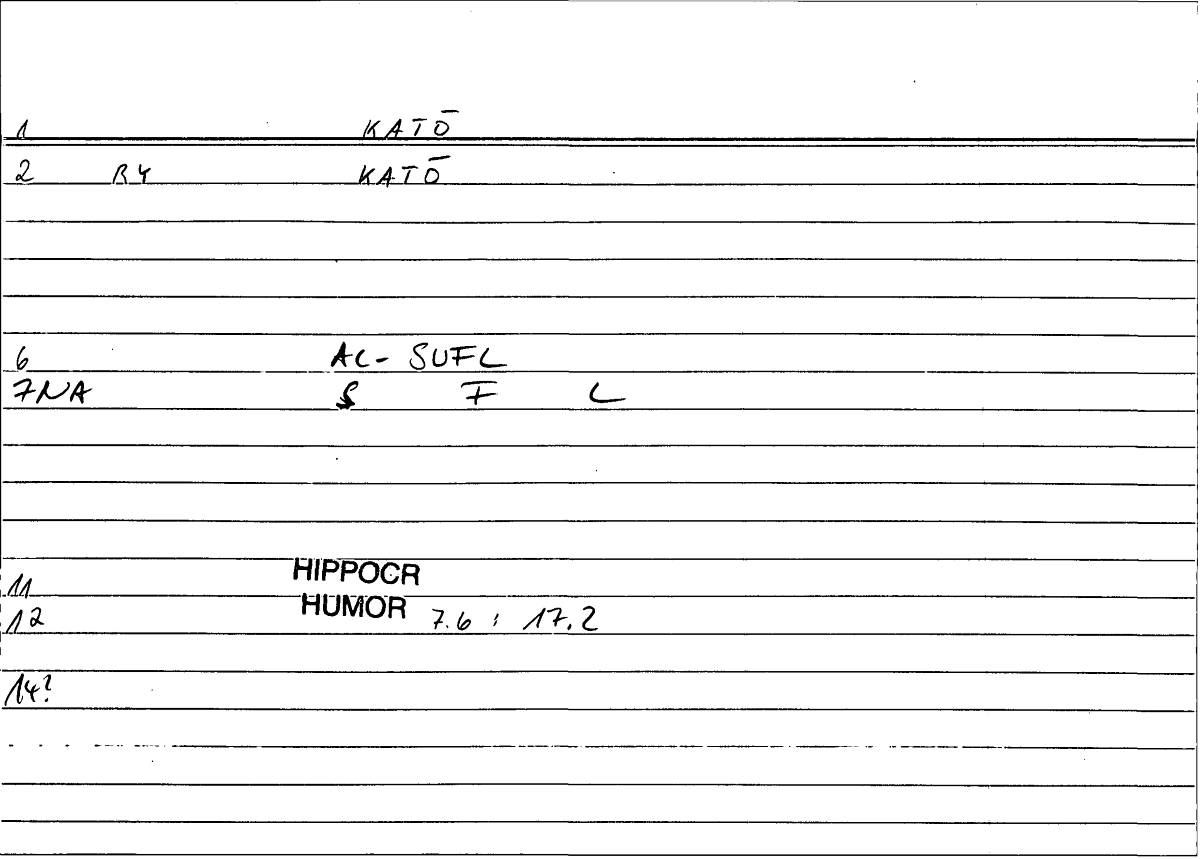 1 KATŌ
2 B4 KATŌ
6 AL- SUFL
7NA S F L
11 HIPPOCR
12 HUMOR 7.6 : 17.2
14?